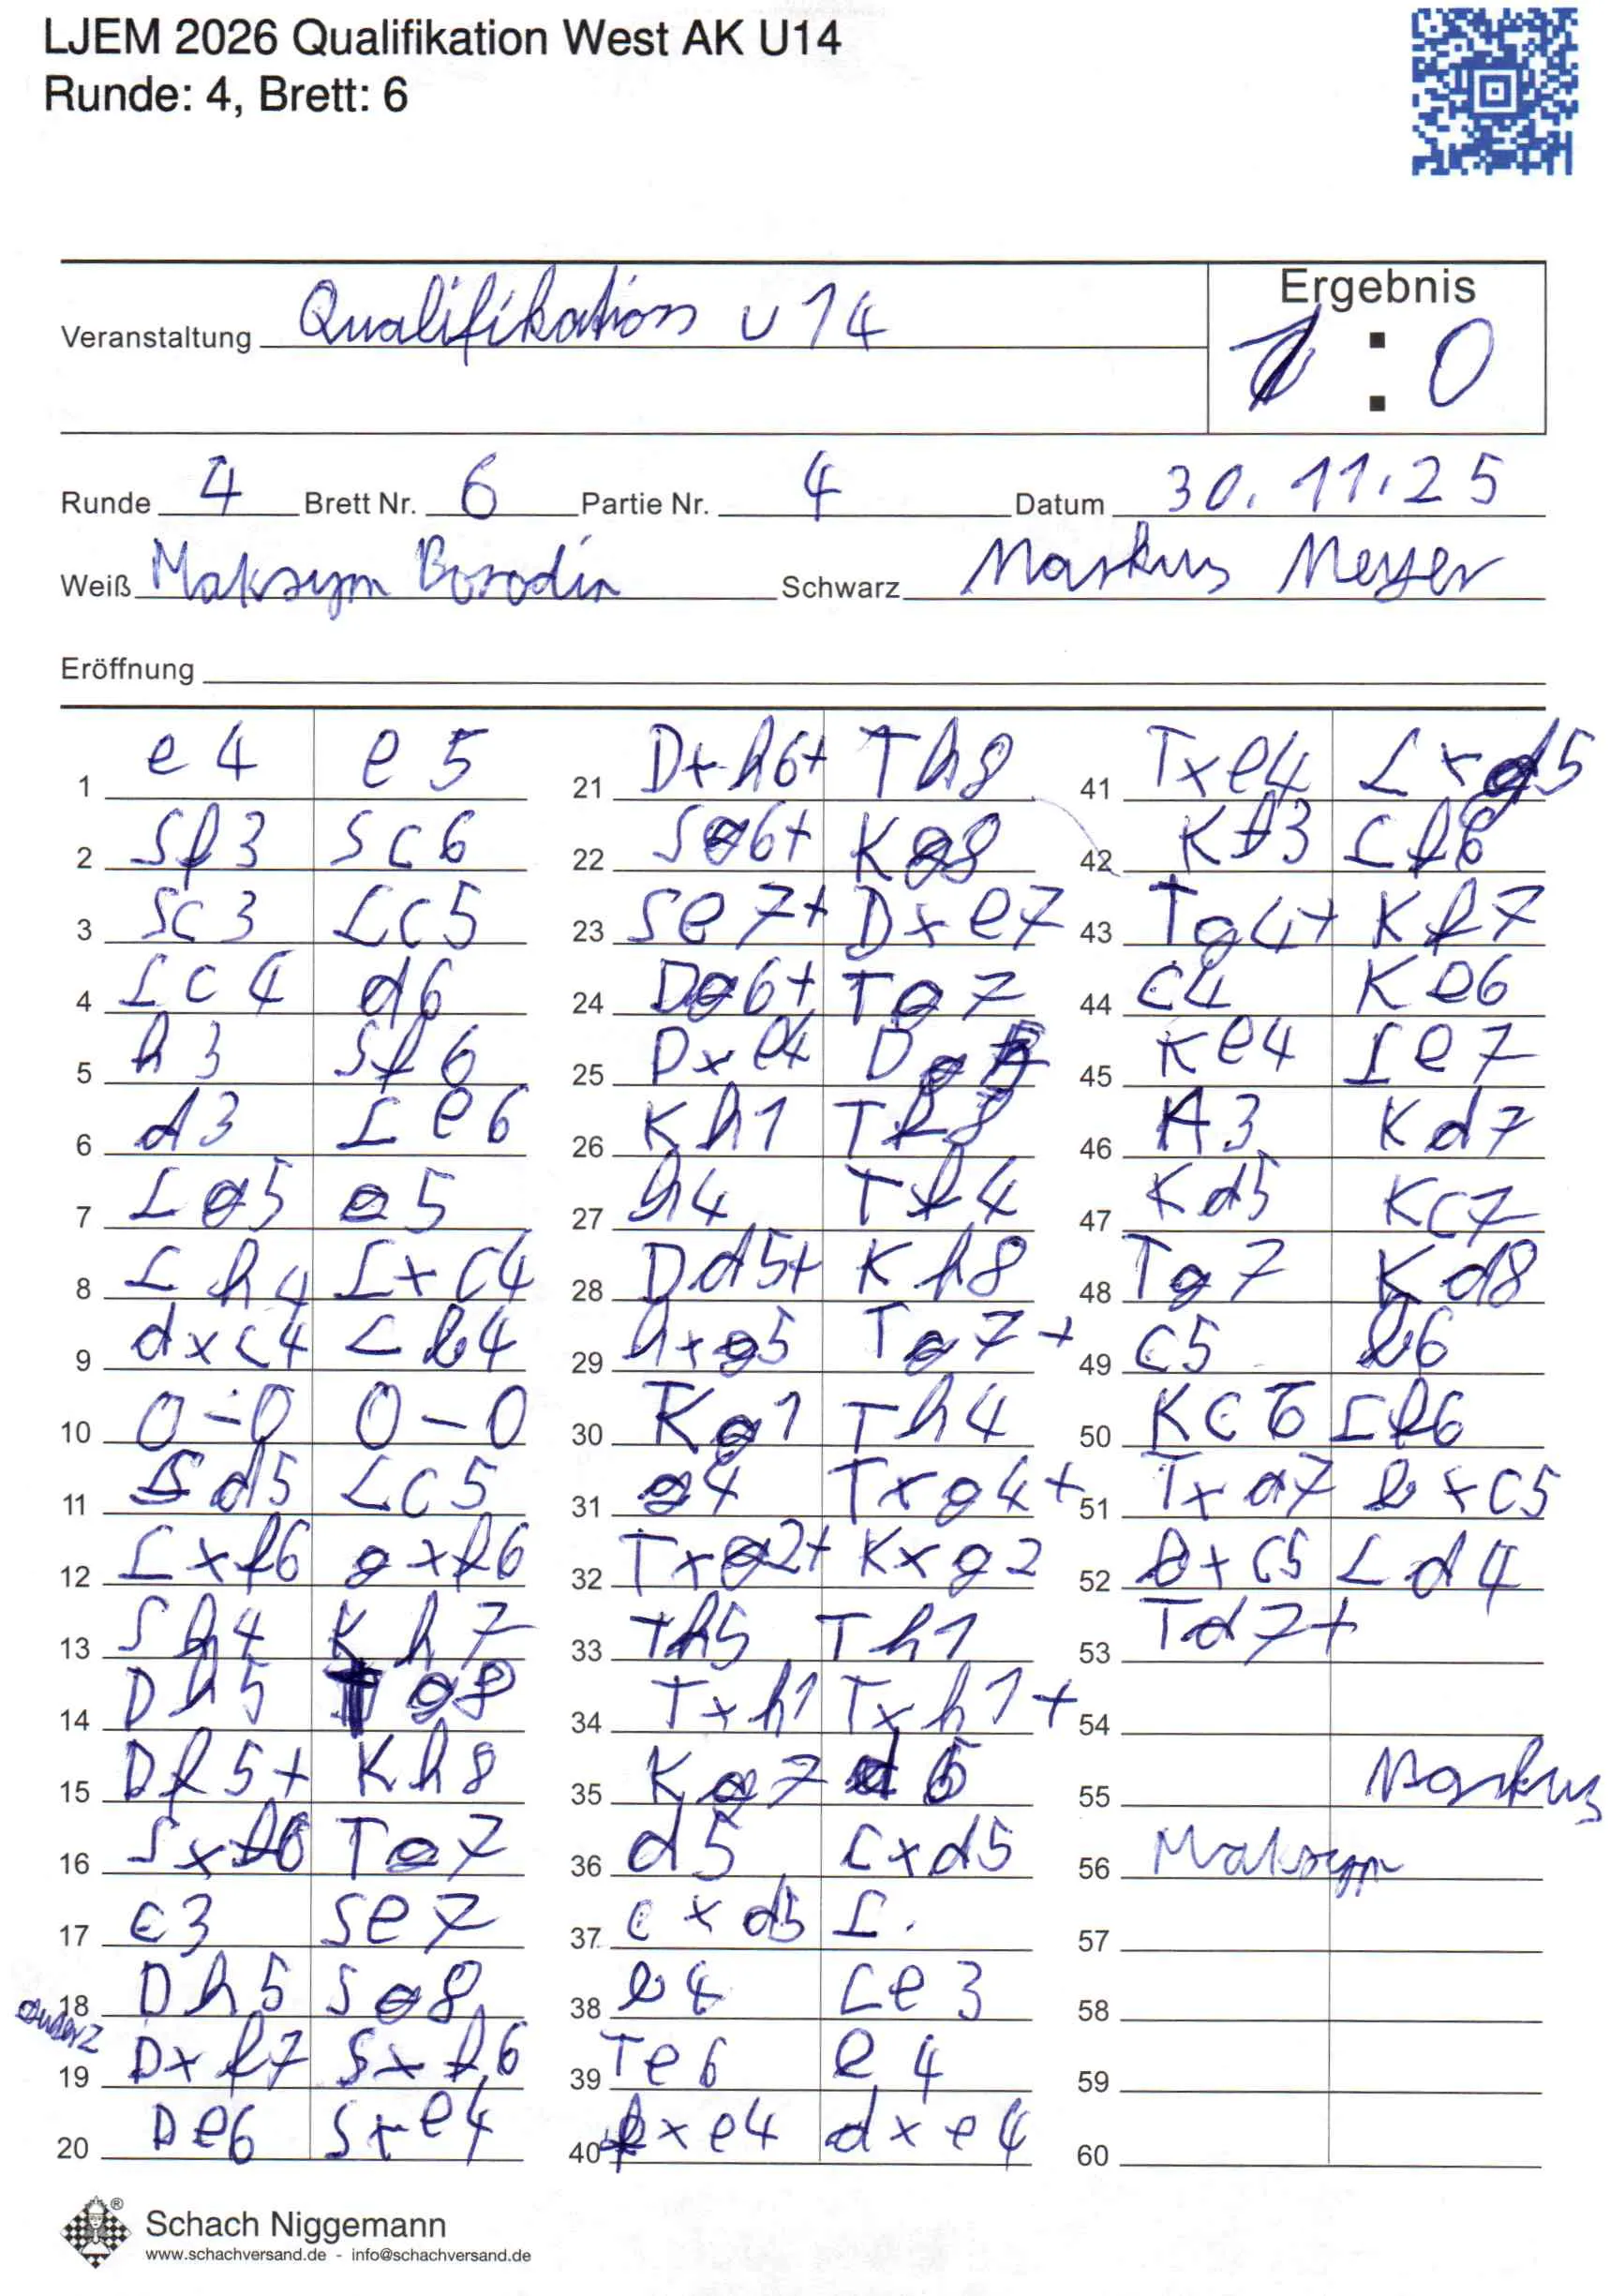 LJEM 2026 Qualifikation West AK U14
Runde: 4, Brett: 6
Veranstaltung Qualifikation U14
Ergebnis
1 : 0
Runde 4 Brett Nr. 6 Partie Nr. 4 Datum 30.11.25
Weiß Maksym Borodin Schwarz Markus Meyer
Eröffnung
1 e4 e5
2 Sf3 Sc6
3 Sc3 Lc5
4 Lc4 d6
5 h3 Sf6
6 d3 Le6
7 Lg5 a5
8 Lh4 Lxc4
9 dxc4 Lb4
10 0-0 0-0
11 Sd5 Lc5
12 Lxf6 gxf6
13 Sh4 Kh7
14 Dh5 Tg8
15 Df5+ Kh8
16 Sxf6 Tg7
17 c3 Se7
18 Dh5 Sg8
19 Dxf7 Sxf6
20 De6 Sxe4
21 Dxh6+ Th8
22 Sg6+ Kg8
23 Se7+ Dxe7
24 Dg6+ Tg7
25 Dxe4 Dg5
26 Kh1 Tf8
27 h4 Tf4
28 Dd5+ Kh8
29 hxg5 Tg7+
30 Kg1 Th4
31 g4 Txg4+
32 Txg2+ Kxg2
33 Th5 Th1
34 Txh1 Txh1+
35 Kg7 d6
36 d5 cxd5
37 cxd5 L.
38 b4 Le3
39 Te6 e4
40 fxe4 dxe4
41 Txe4 Lxd5
42 Kf3 Lf6
43 Tg4+ Kf7
44 c4 Ke6
45 Ke4 Le7
46 A3 Kd7
47 Kd5 Kc7
48 Tg7 Kd8
49 c5 b6
50 Kc6 Lf6
51 Txa7 bxc5
52 bxc5 Ld4
53 Td7+
54
55 Markus
56 Maksym
57
58
59
60
Schach Niggemann
www.schachversand.de - info@schachversand.de